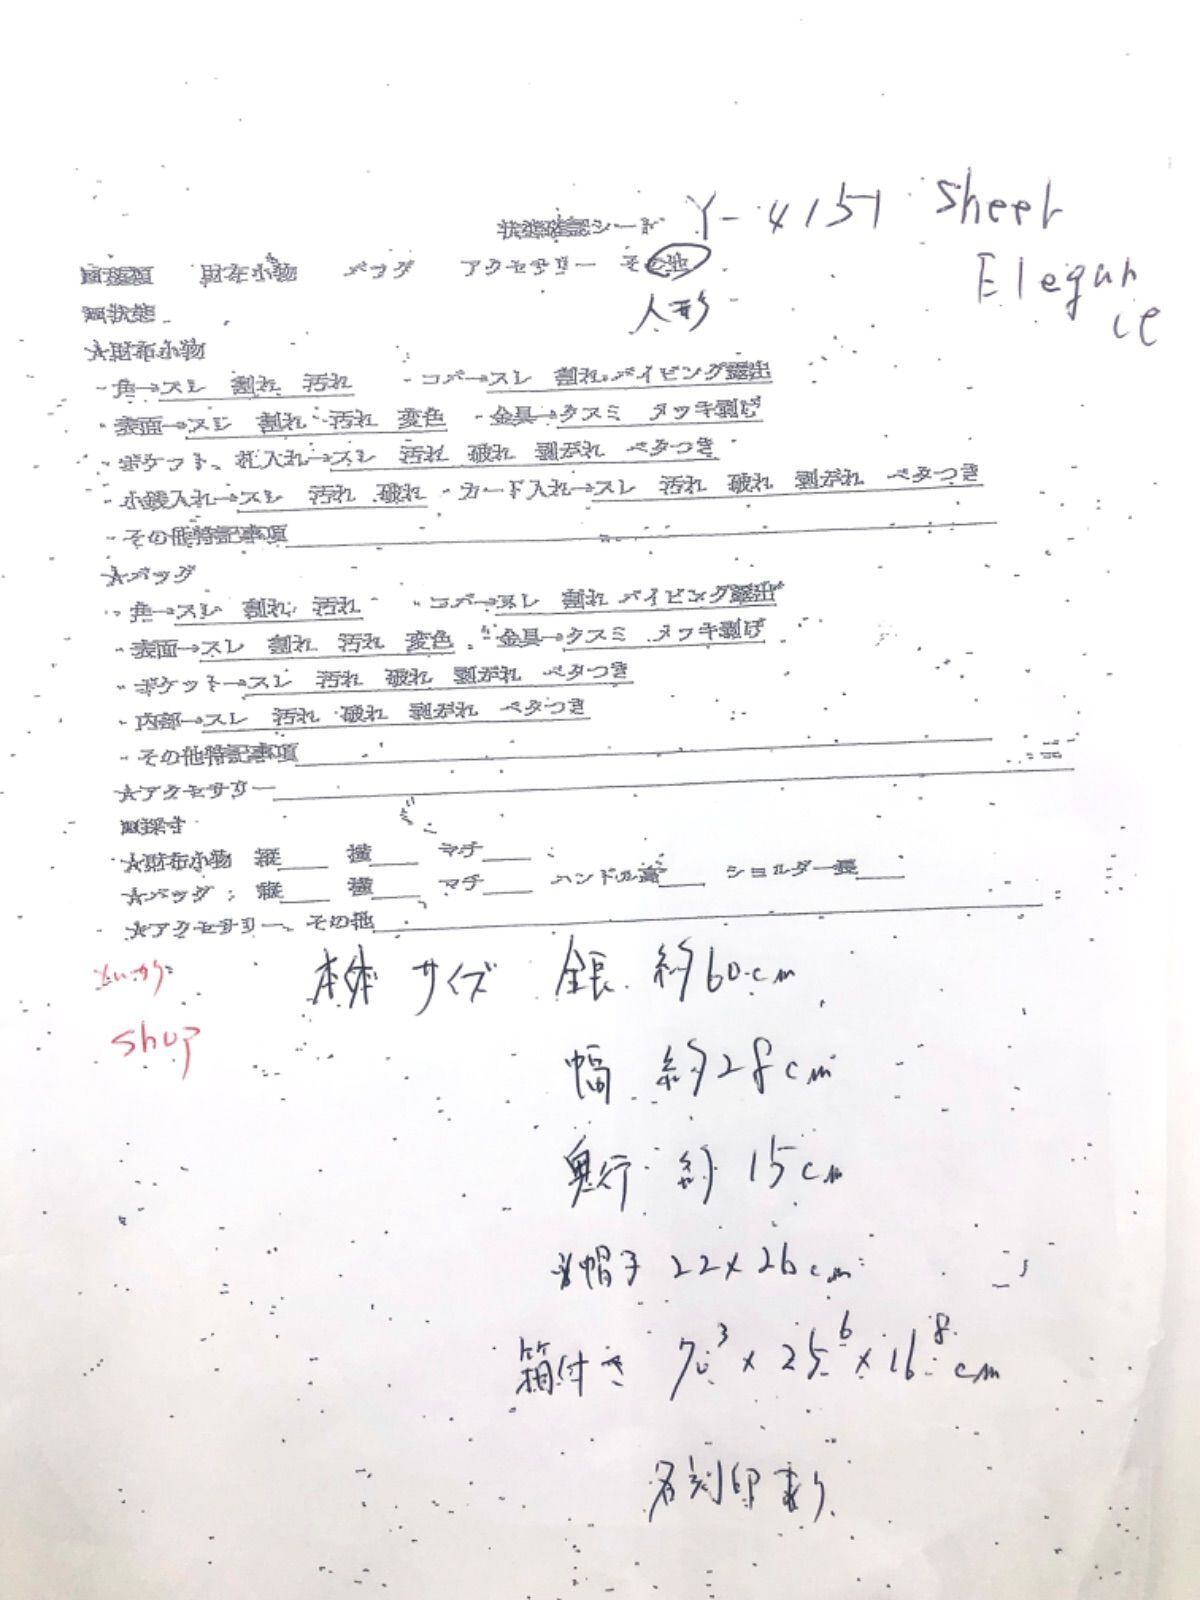 状態確認シート Y-4151 Sheet
Elegance
■種類 財布小物 バッグ アクセサリー その他
人形
■状態
★財布小物
・角→スレ 割れ 汚れ ・コバ→スレ 割れ パイピング露出
・表面→スレ 割れ 汚れ 変色 ・金具→クスミ メッキ剥げ
・ポケット、札入れ→スレ 汚れ 破れ 剥がれ ベタつき
・小銭入れ→スレ 汚れ 破れ ・カード入れ→スレ 汚れ 破れ 剥がれ ベタつき
・その他特記事項
★バッグ
・角→スレ 割れ 汚れ ・コバ→スレ 割れ パイピング露出
・表面→スレ 割れ 汚れ 変色 ・金具→クスミ メッキ剥げ
・ポケット→スレ 汚れ 破れ 剥がれ ベタつき
・内部→スレ 汚れ 破れ 剥がれ ベタつき
・その他特記事項
★アクセサリー
■採寸
★財布小物 縦 横 マチ
★バッグ：縦 横 マチ ハンドル高 ショルダー長
★アクセサリー、その他
本体 サイズ 全長 約60cm
shop
幅 約28cm
奥行 約15cm
帽子 22×26cm
箱付き 70.3×25.6×16.8cm
刻印